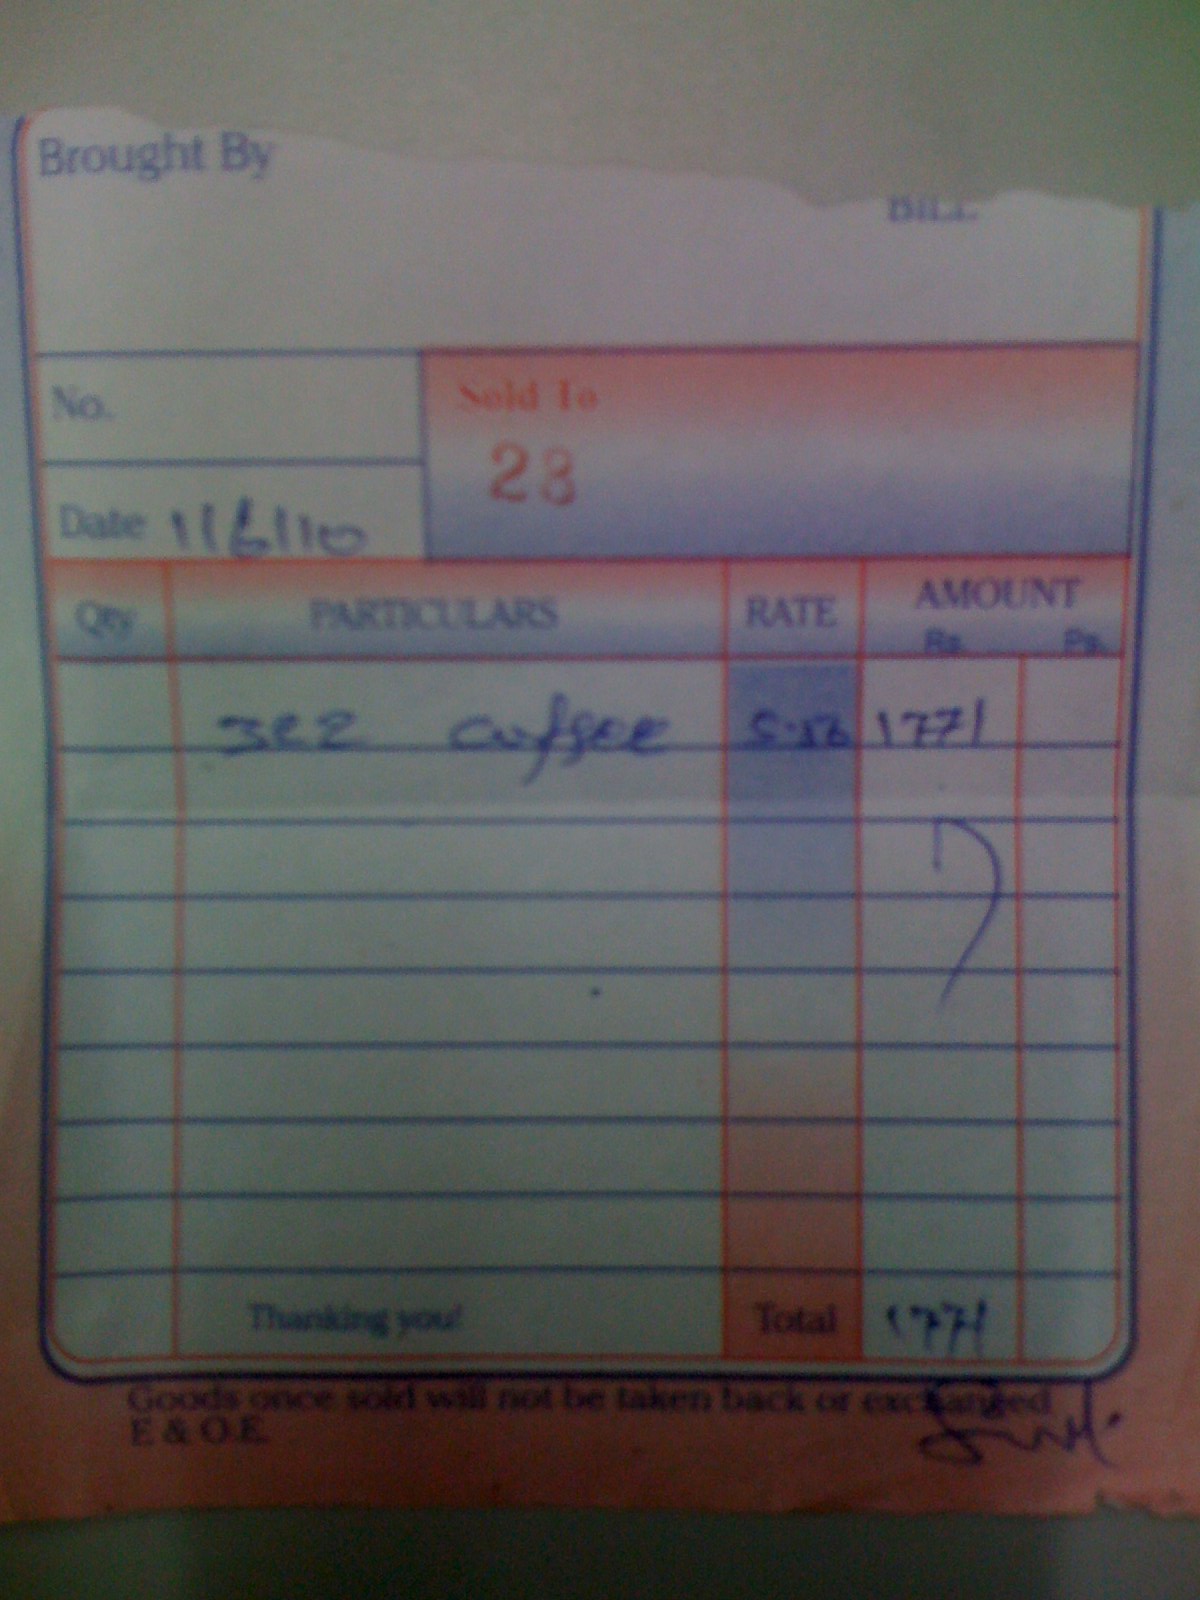 Brought By
BILL
No.
Sold To
28
Date 1/6/10
Qty PARTICULARS RATE AMOUNT
Rs. Ps.
322 coffee 5.50 1771
Thanking you! Total 1771
Goods once sold will not be taken back or exchanged
E & O.E.